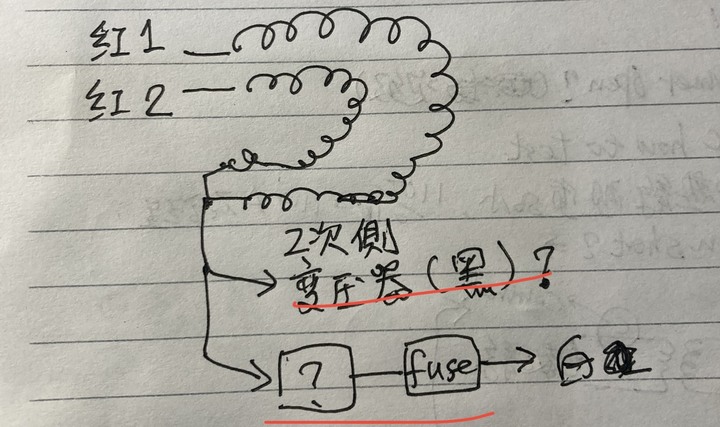 红1
红2
2次側
变压器(黑)?
? fuse 白